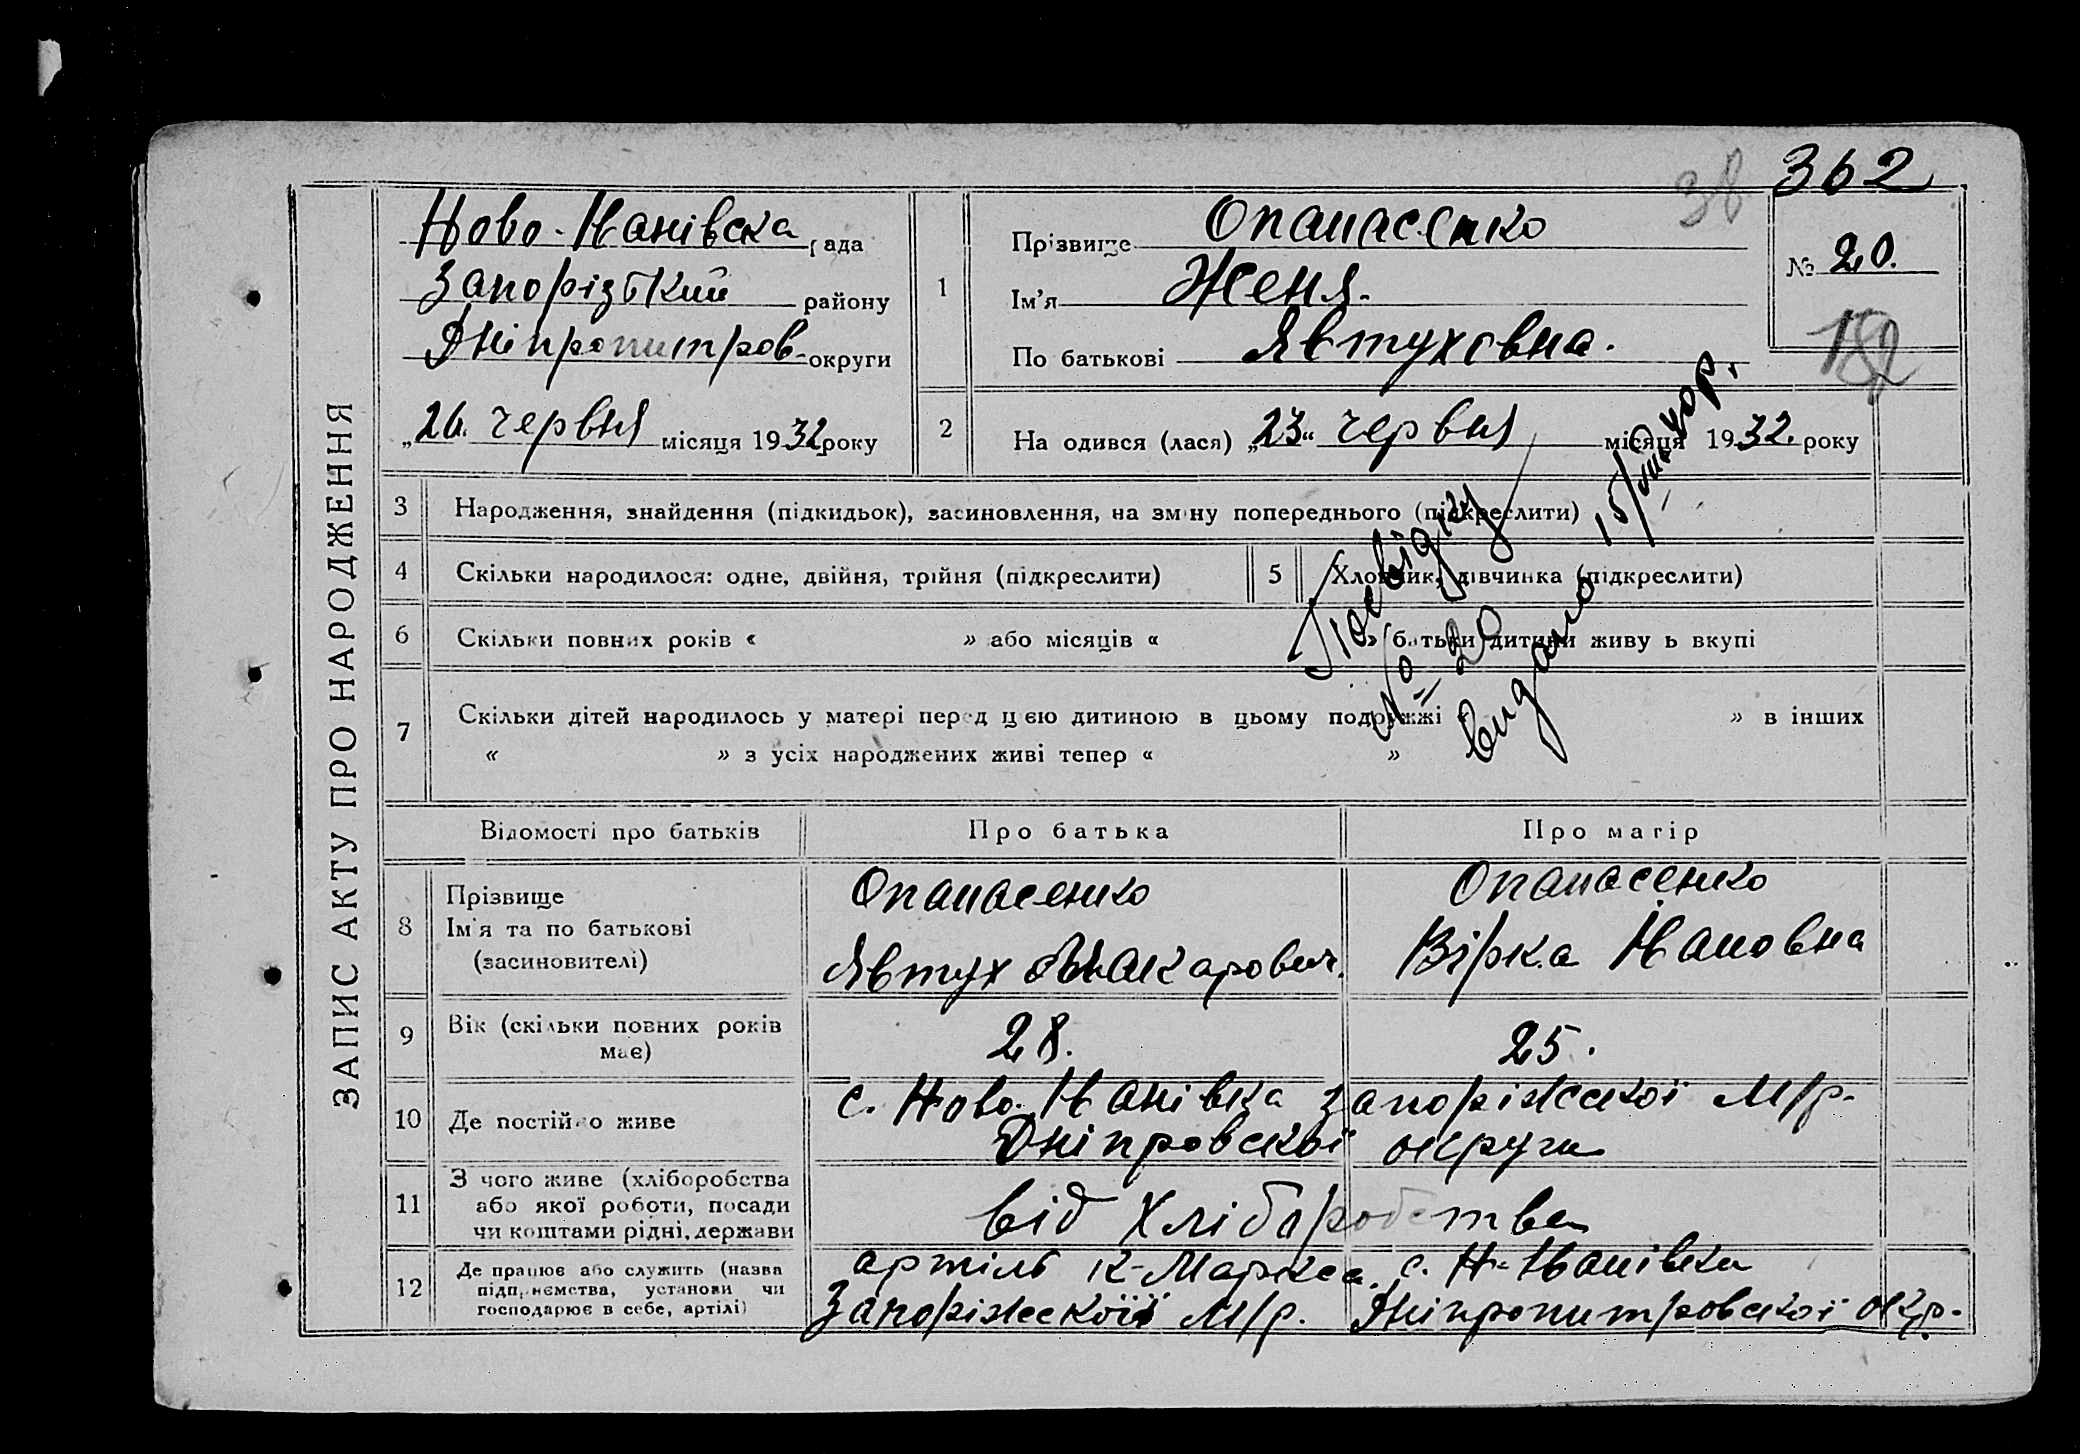 38 362
ЗАПИС АКТУ ПРО НАРОДЖЕННЯ
Ново-Іванівска рада
Запорізький району
Дніпропитров. округи
„26. червня місяця 1932 року
1
Прізвище Опанасенко
Ім’я Женя.
По батькові Явтуховна.
№ 20.
182
2 На одився (лася) „23“ червня місяця 1932. року
3 Народження, знайдення (підкидьок), засиновлення, на зміну попереднього (підкреслити)
4 Скільки народилося: одне, двійня, трійня (підкреслити)
5 Хлопчик, дівчинка (підкреслити)
6 Скільки повних років « » або місяців « » батьки дитини живу ь вкупі
7 Скільки дітей народилось у матері перед цією дитиною в цьому подружжі « » в інших
« » з усіх народжених живі тепер « »
Посвідку
№ 20
видано 15/III
Відомості про батьків Про батька Про матір
8 Прізвище
Ім'я та по батькові
(засиновителі)
Опанасенко
Явтух Макарович.
Опанасенко
Вірка Івановна
9 Вік (скільки повних років
має)
28. 25.
10 Де постійно живе
с. Ново-Іванівка Запоріжської М/р.
Дніпровської округи
11 З чого живе (хліборобства
або якої роботи, посади
чи коштами рідні, держави
від Хліборобства
12 Де працює або служить (назва
підприємства, установи чи
господарює в себе, артілі)
артіль К-Маркса. с. Н-Іванівка
Запоріжської М/р. Дніпропитровської окр.